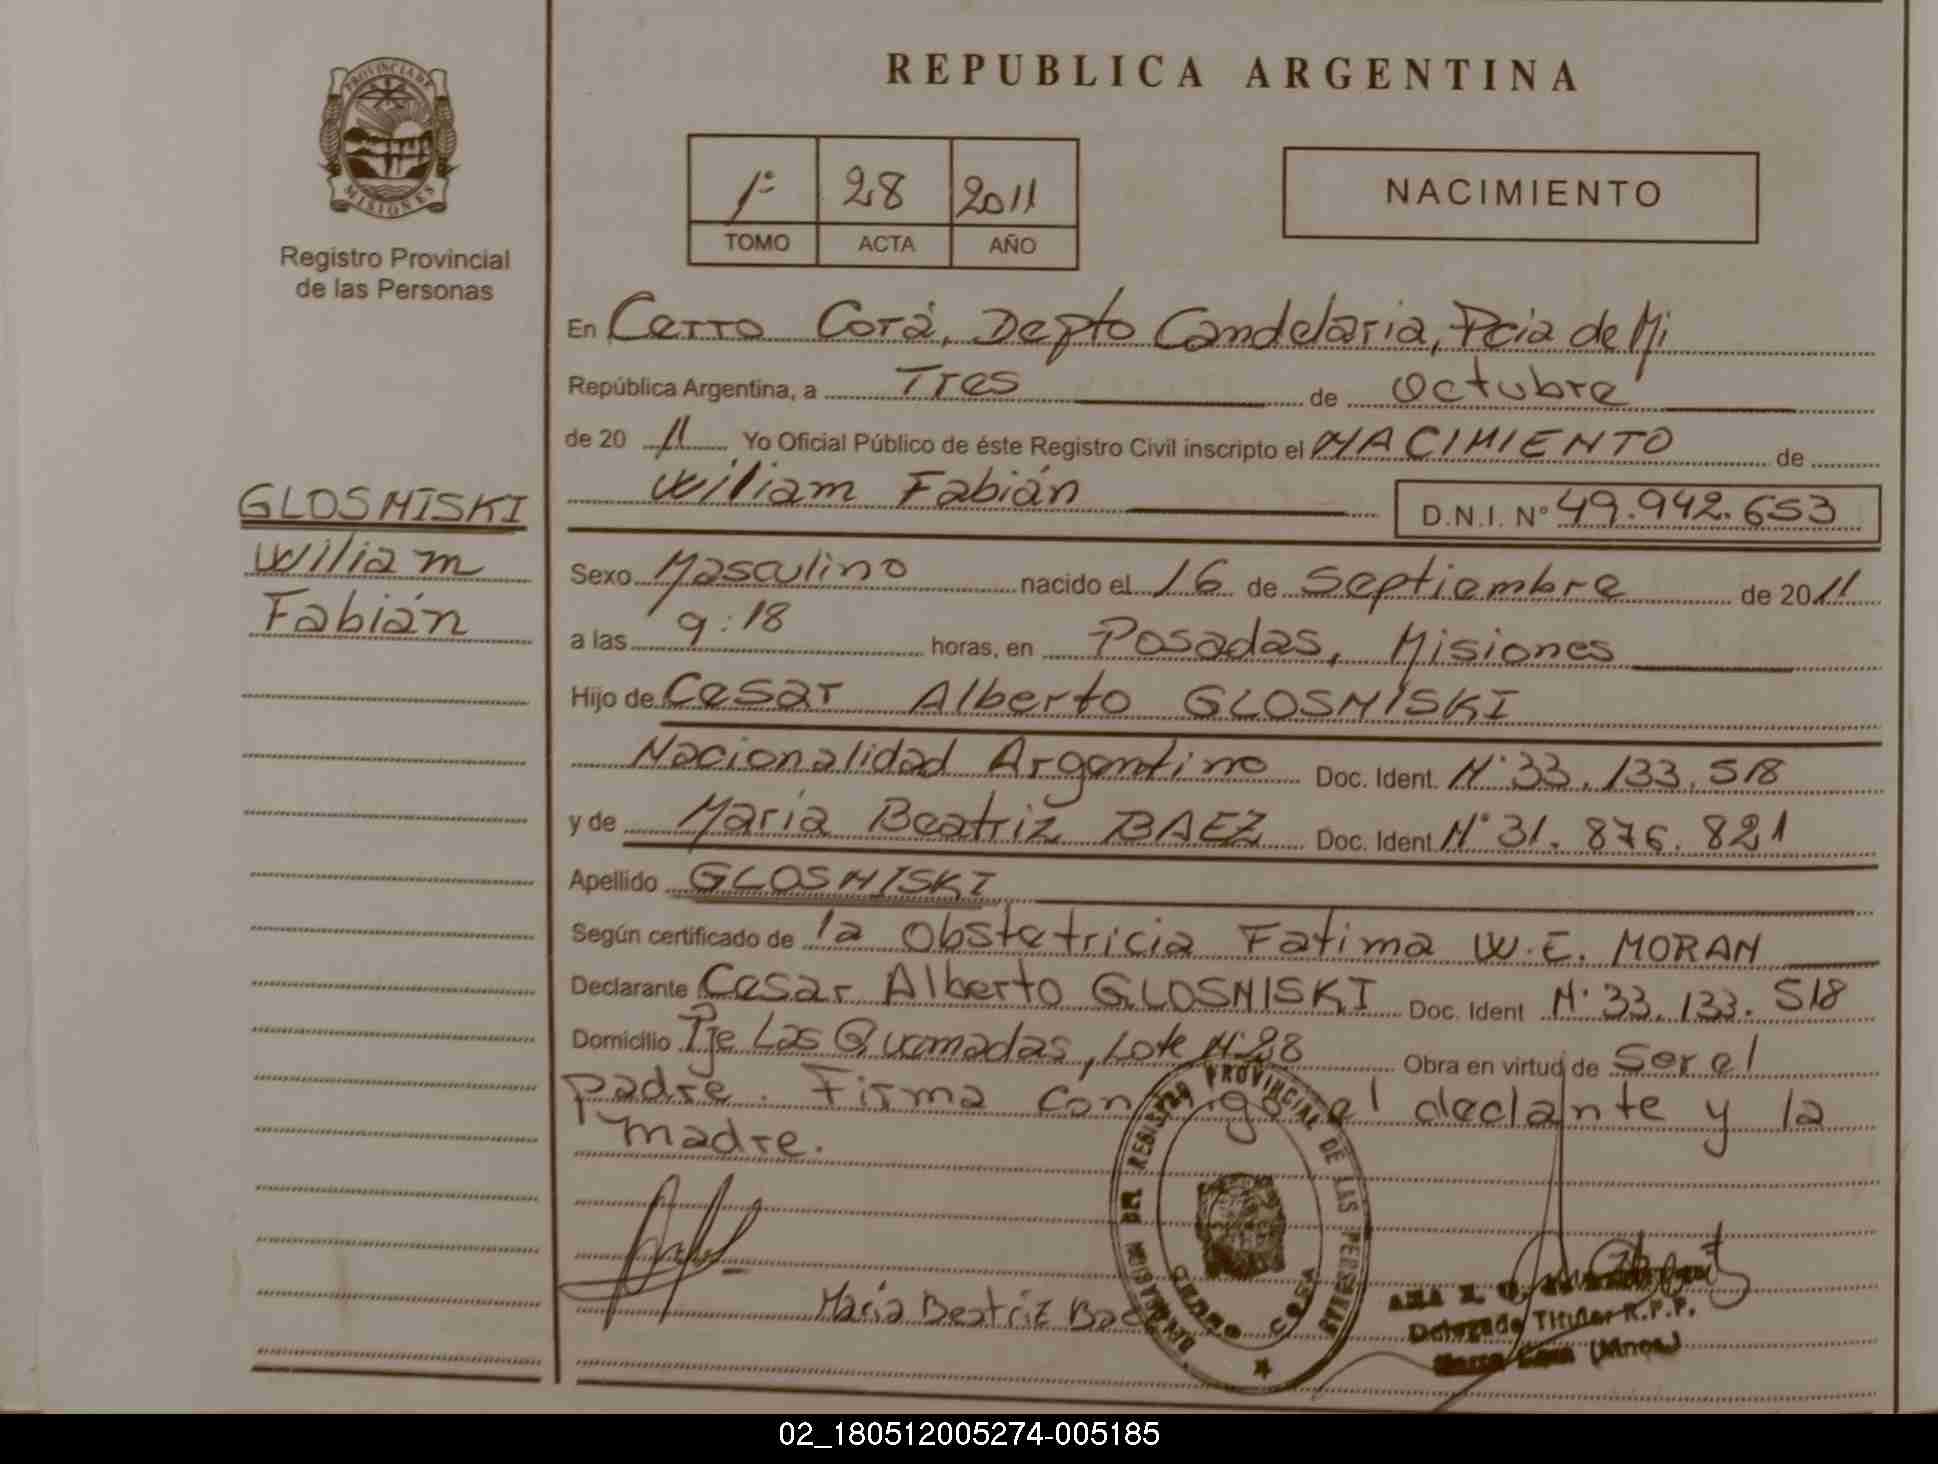 PROVINCIA DE
MISIONES
Registro Provincial
de las Personas
GLOSNISKI
Wiliam
Fabián
REPUBLICA ARGENTINA
1º 28 2011
TOMO ACTA AÑO
NACIMIENTO
En Cerro Corá, Depto Candelaria, Pcia de Mi
República Argentina, a Tres de octubre
de 20 11 Yo Oficial Público de éste Registro Civil inscripto el NACIMIENTO de
Wiliam Fabián D.N.I. Nº 49.942.653
Sexo Masculino nacido el 16 de Septiembre de 2011
a las 9:18 horas, en Posadas, Misiones
Hijo de Cesar Alberto GLOSNISKI
Nacionalidad Argentino Doc. Ident. N° 33.133.518
y de Maria Beatriz BAEZ Doc. Ident. N° 31.876.821
Apellido GLOSNISKI
Según certificado de la Obstetricia Fatima W.E. MORAN
Declarante Cesar Alberto GLOSNISKI Doc. Ident N° 33.133.518
Domicilio Pje Las Quemadas, Lote N° 28 Obra en virtud de Ser el
padre. Firma conmigo el declante y la
madre.
Maria Beatriz Bae
DELEGACION DEL REGISTRO PROVINCIAL DE LAS PERSONAS
CERRO CORA
ANA
Delegada Titular R.P.P.
Cerro Cora (Mnes.)
02_180512005274-005185